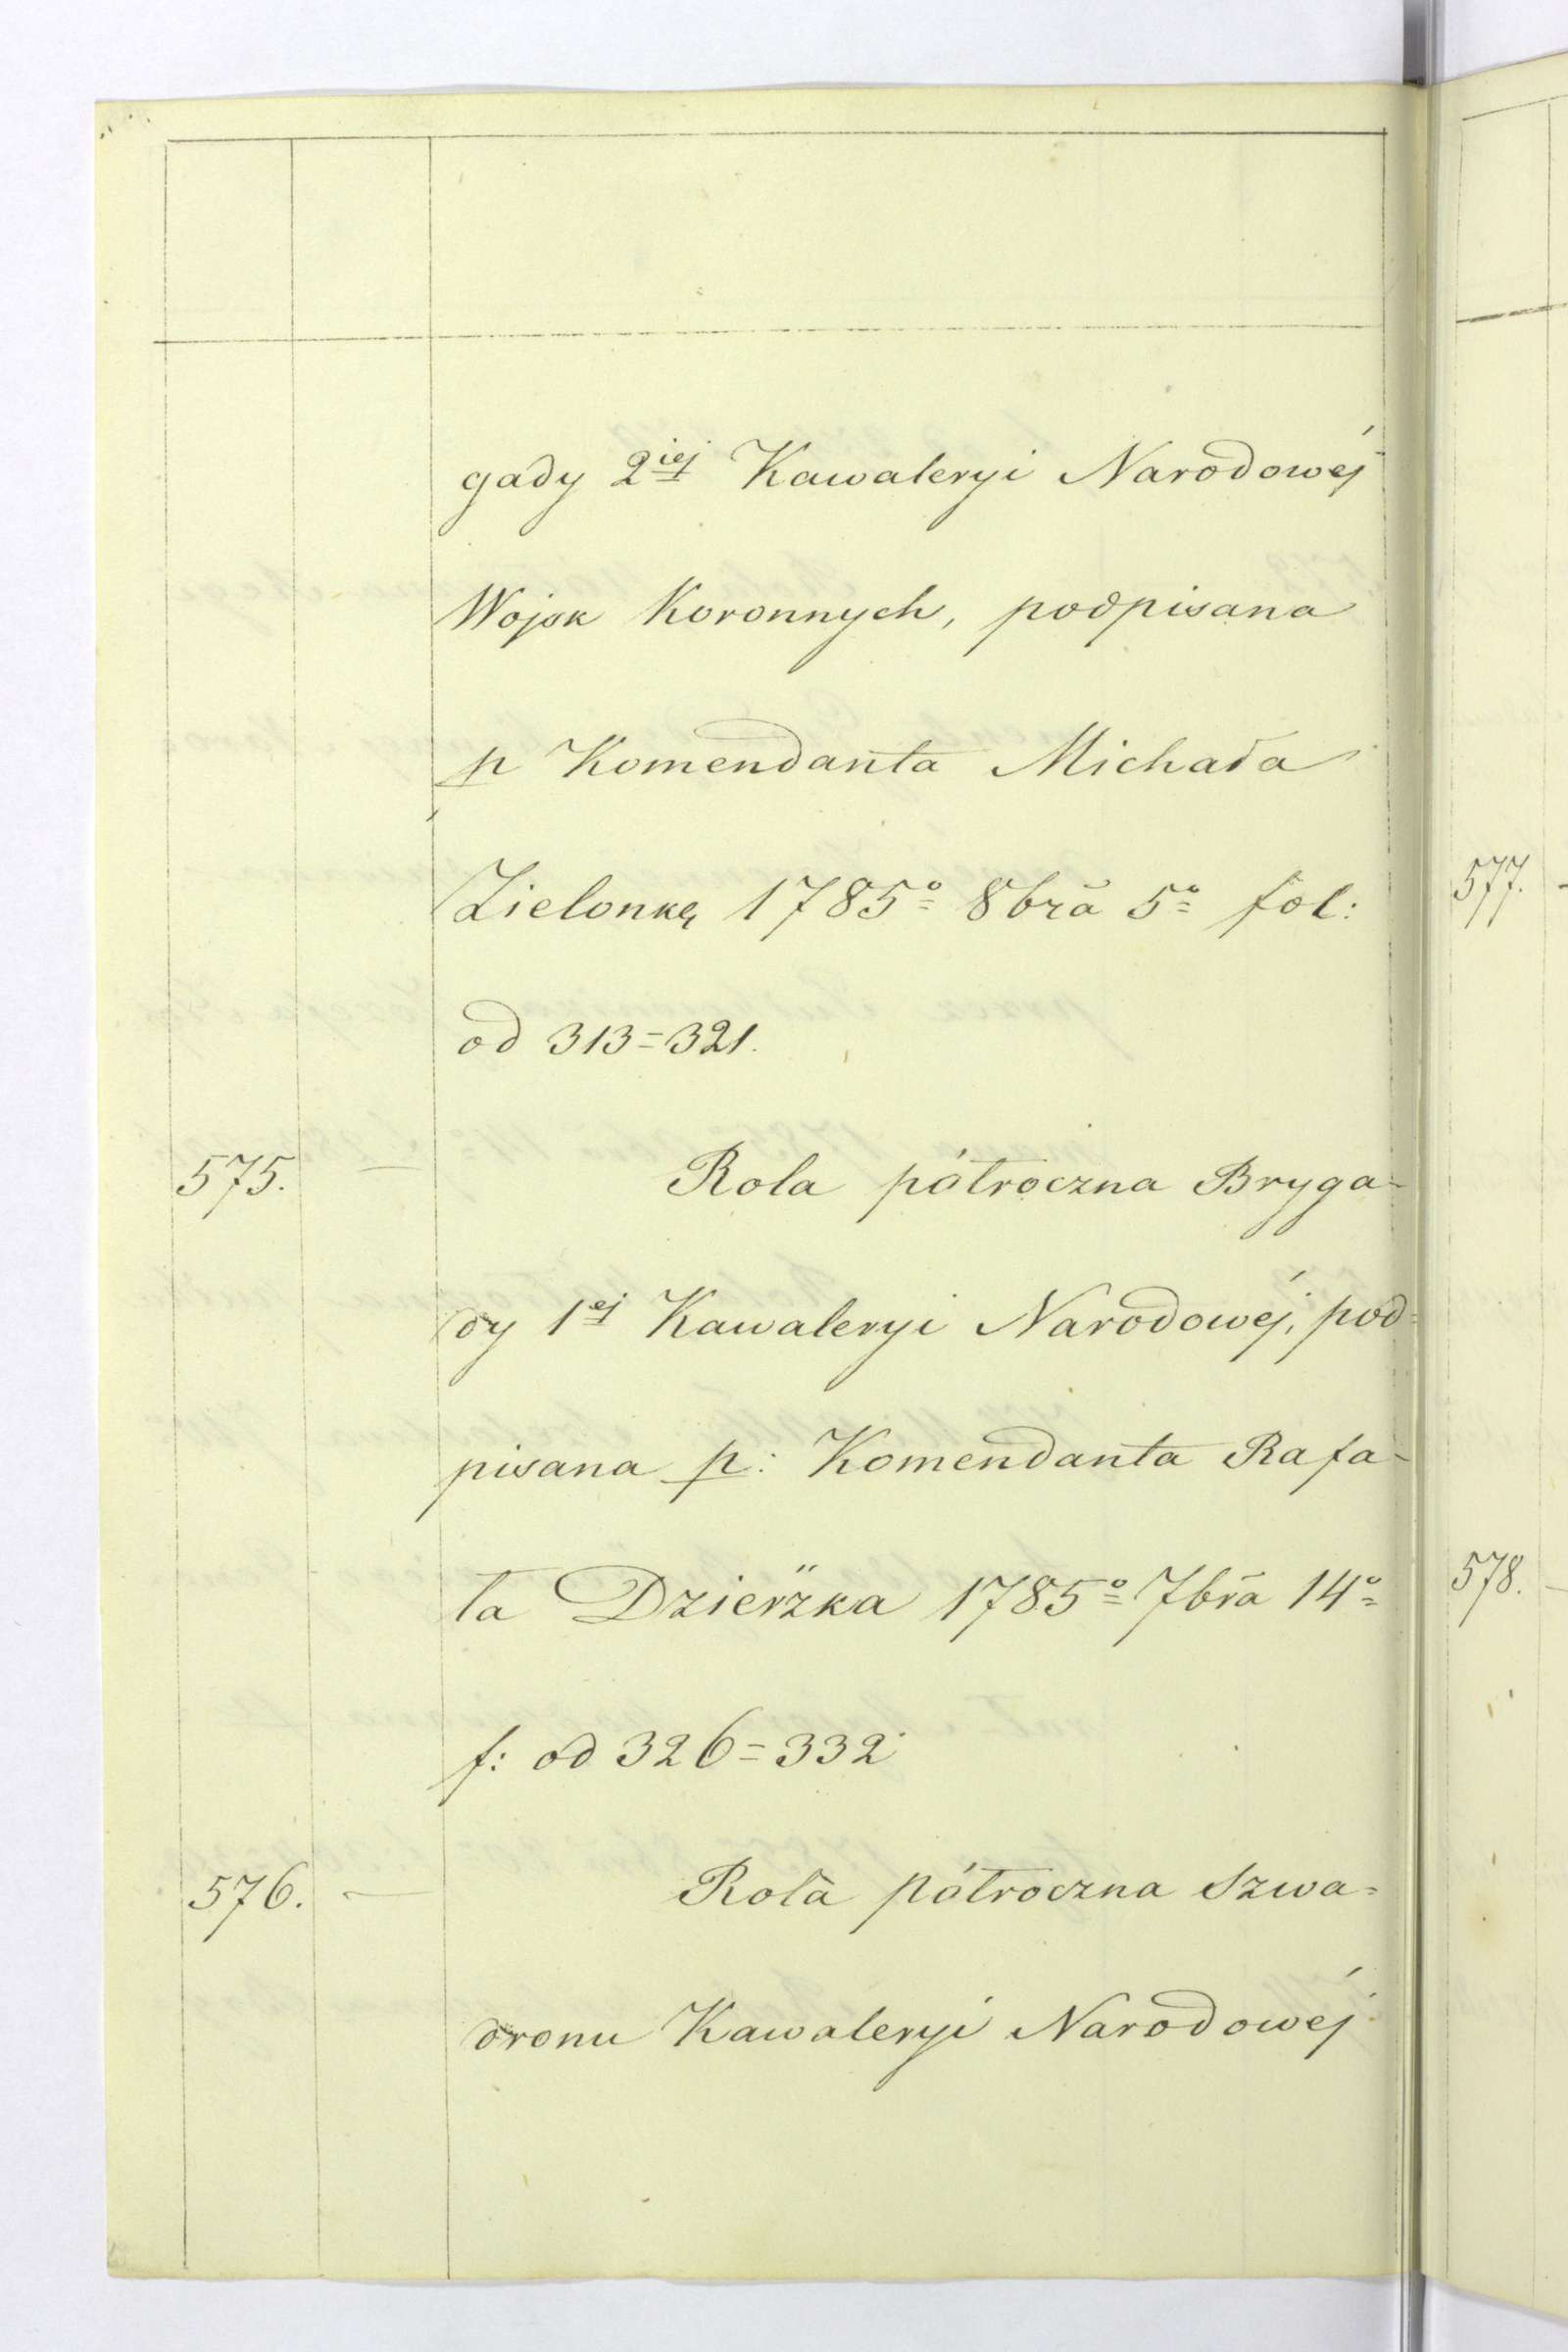 gady 2iej Kawaleryi Narodowéj
Wojsk Koronnych, podpisana
p Komendanta Michała
Zielonkę 1785o 8bra 5o fol:
od 313=321.
575. — Rola półroczna Bryga-
dy 1ej Kawaleryi Narodowéj, pod=
pisana p: Komendanta Rafa-
ła Dzierżka 1785o 7bra 14o
f: od 326=332
576. — Rola półroczna Szwa=
dronu Kawaleryi Narodowéj
577.
578.